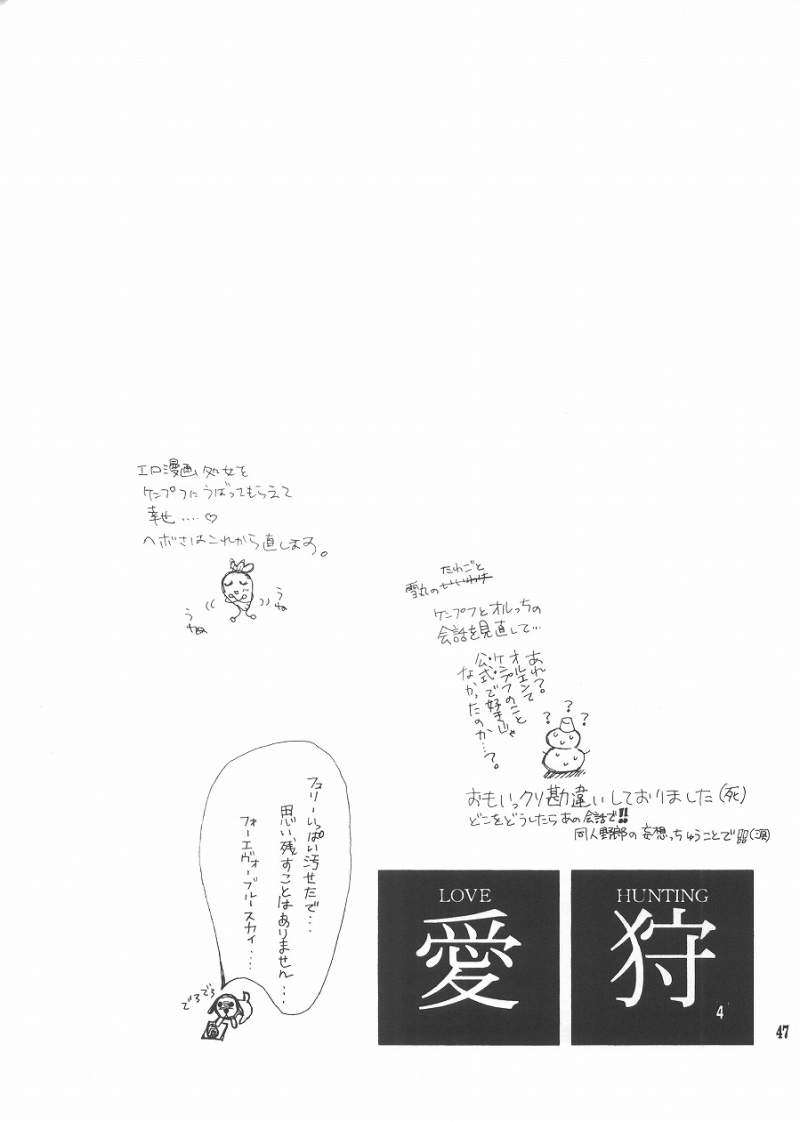 エロ漫画処女を
ケンプフにうばってもらえて
幸せ....♡
ヘボさはこれから直します。
うねうね
うね
たわごと
雪丸のいいわけ
ケンプフとオルっちの
会話を見直して...
あれ?
オルエンて
ケンプフのこと
公式で好きじゃ
なかったのか...?。
? ? ?
おもいっクリ勘違いしておりました(死)
どこをどうしたらあの会話で!!
同人野郎の妄想っちゅうことで(涙)
フュリーいっぱい汚せたで...
思い残すことはありません...
フォーエヴォーブルースカイ....
でろでろ
LOVE
愛
HUNTING
狩
4
47